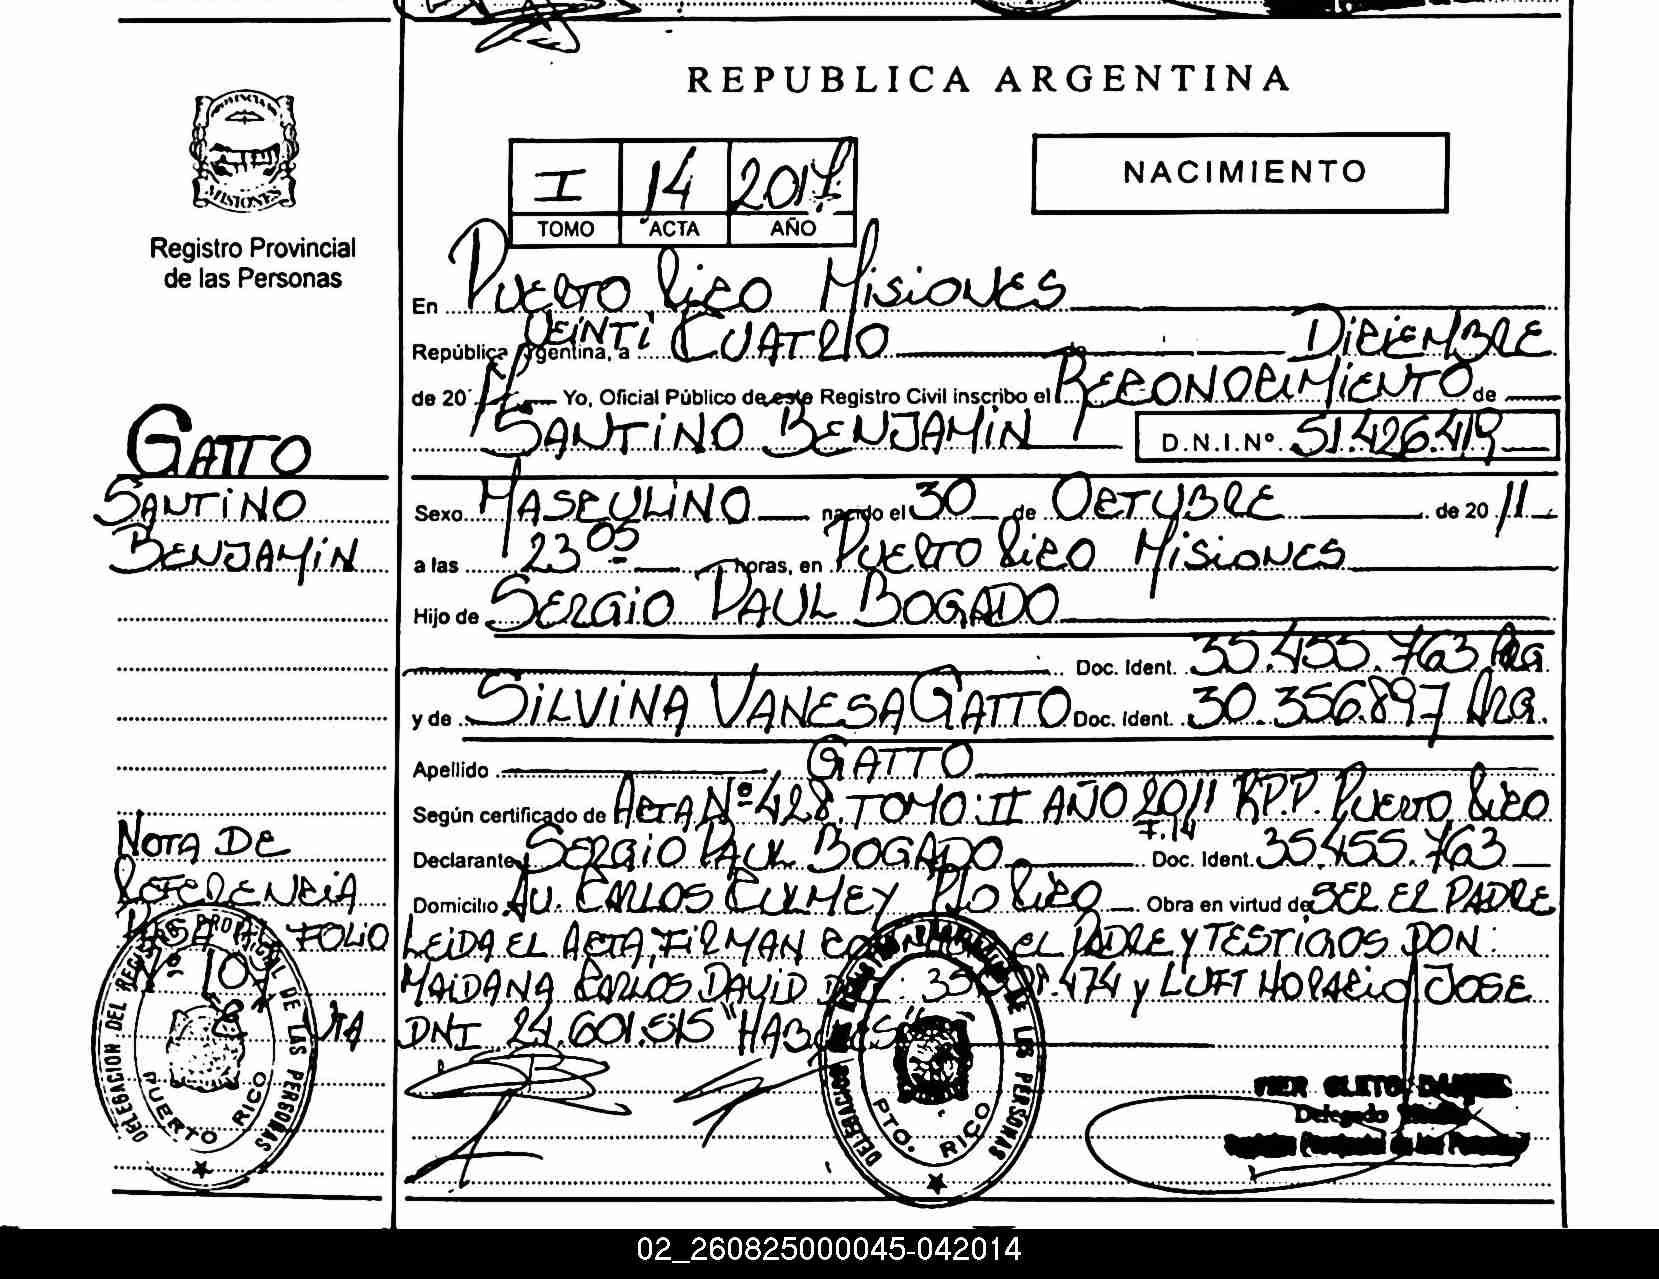 REPUBLICA ARGENTINA
MISIONES
Registro Provincial
de las Personas
NACIMIENTO
I 14 2017
TOMO ACTA AÑO
En PUERTO RICO MISIONES
República Argentina, a VEINTI CUATRO de DICIEMBRE
de 20 Yo, Oficial Público de este Registro Civil inscribo el RECONOCIMIENTO de
SANTINO BENJAMIN D.N.I.Nº. 51.426.419
GATTO
SANTINO
BENJAMIN
Sexo MASCULINO nacido el 30 de OCTUBRE de 20 11
a las 23 05 horas, en PUERTO RICO MISIONES
Hijo de SERGIO PAUL BOGADO
Doc. Ident. 35.455.763 Arg.
y de SILVINA VANESA GATTO Doc. Ident. 30.356.897 Arg.
Apellido GATTO
Según certificado de ACTA Nº 428. TOMO: II AÑO 2011 R.P.P. PUERTO RICO
F. 14
Declarante SERGIO PAUL BOGADO Doc. Ident. 35.455.763
Domicilio AV. CARLOS CULMEY Pto RICO Obra en virtud de SER EL PADRE
LEIDA EL ACTA, FIRMAN EL PADRE Y TESTIGOS DON:
MAIDANA CARLOS DAVID 474 y LUFT HORACIO JOSE
DNI 24.601.515 "HABILES"
NOTA DE
REFERENCIA
FOLIO
DELEGACION DEL REGISTRO PROVINCIAL DE LAS PERSONAS
PUERTO RICO
DELEGACION DE LAS PERSONAS
PTO. RICO
Delegado
Registro Provincial de las Personas
02_260825000045-042014